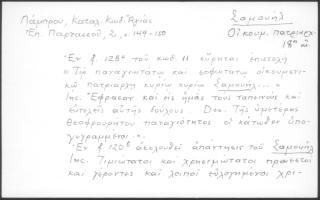 Λάμπρου, Καταλ. Κωδ. Ἁγίας
Ἐπ. Παρτασοῦ. 2, σ. 149-150
Σαμουήλ
Οἰκουμ. πατριαρχ.
18ος αἰ.
Ἐν φ. 128α τοῦ κωδ. 11 εὕρηται ἐπιστολὴ
« Τῷ παναγιωτάτῳ καὶ σοφωτάτῳ οἰκουμενι-
κῷ πατριάρχῃ κυρίῳ κυρίῳ Σαμουήλ... »
Inc. Ἔφθασαν καὶ εἰς ἡμᾶς τοὺς ταπεινοὺς καὶ
εὐτελεῖς αὐτῆς δούλους. Des. Τῆς ὑμετέρας
θεοφρουρήτου παναγιότητος οἱ κάτωθεν ὑπο-
γεγραμμένοι ».
Ἐν φ. 120β ἀκολουθεῖ ἀπάντησις τοῦ Σαμουήλ
Inc. Τιμιώτατοι καὶ χρησιμώτατοι προεστοὶ
καὶ γέροντες καὶ λοιποὶ εὐλογημένοι χρι-